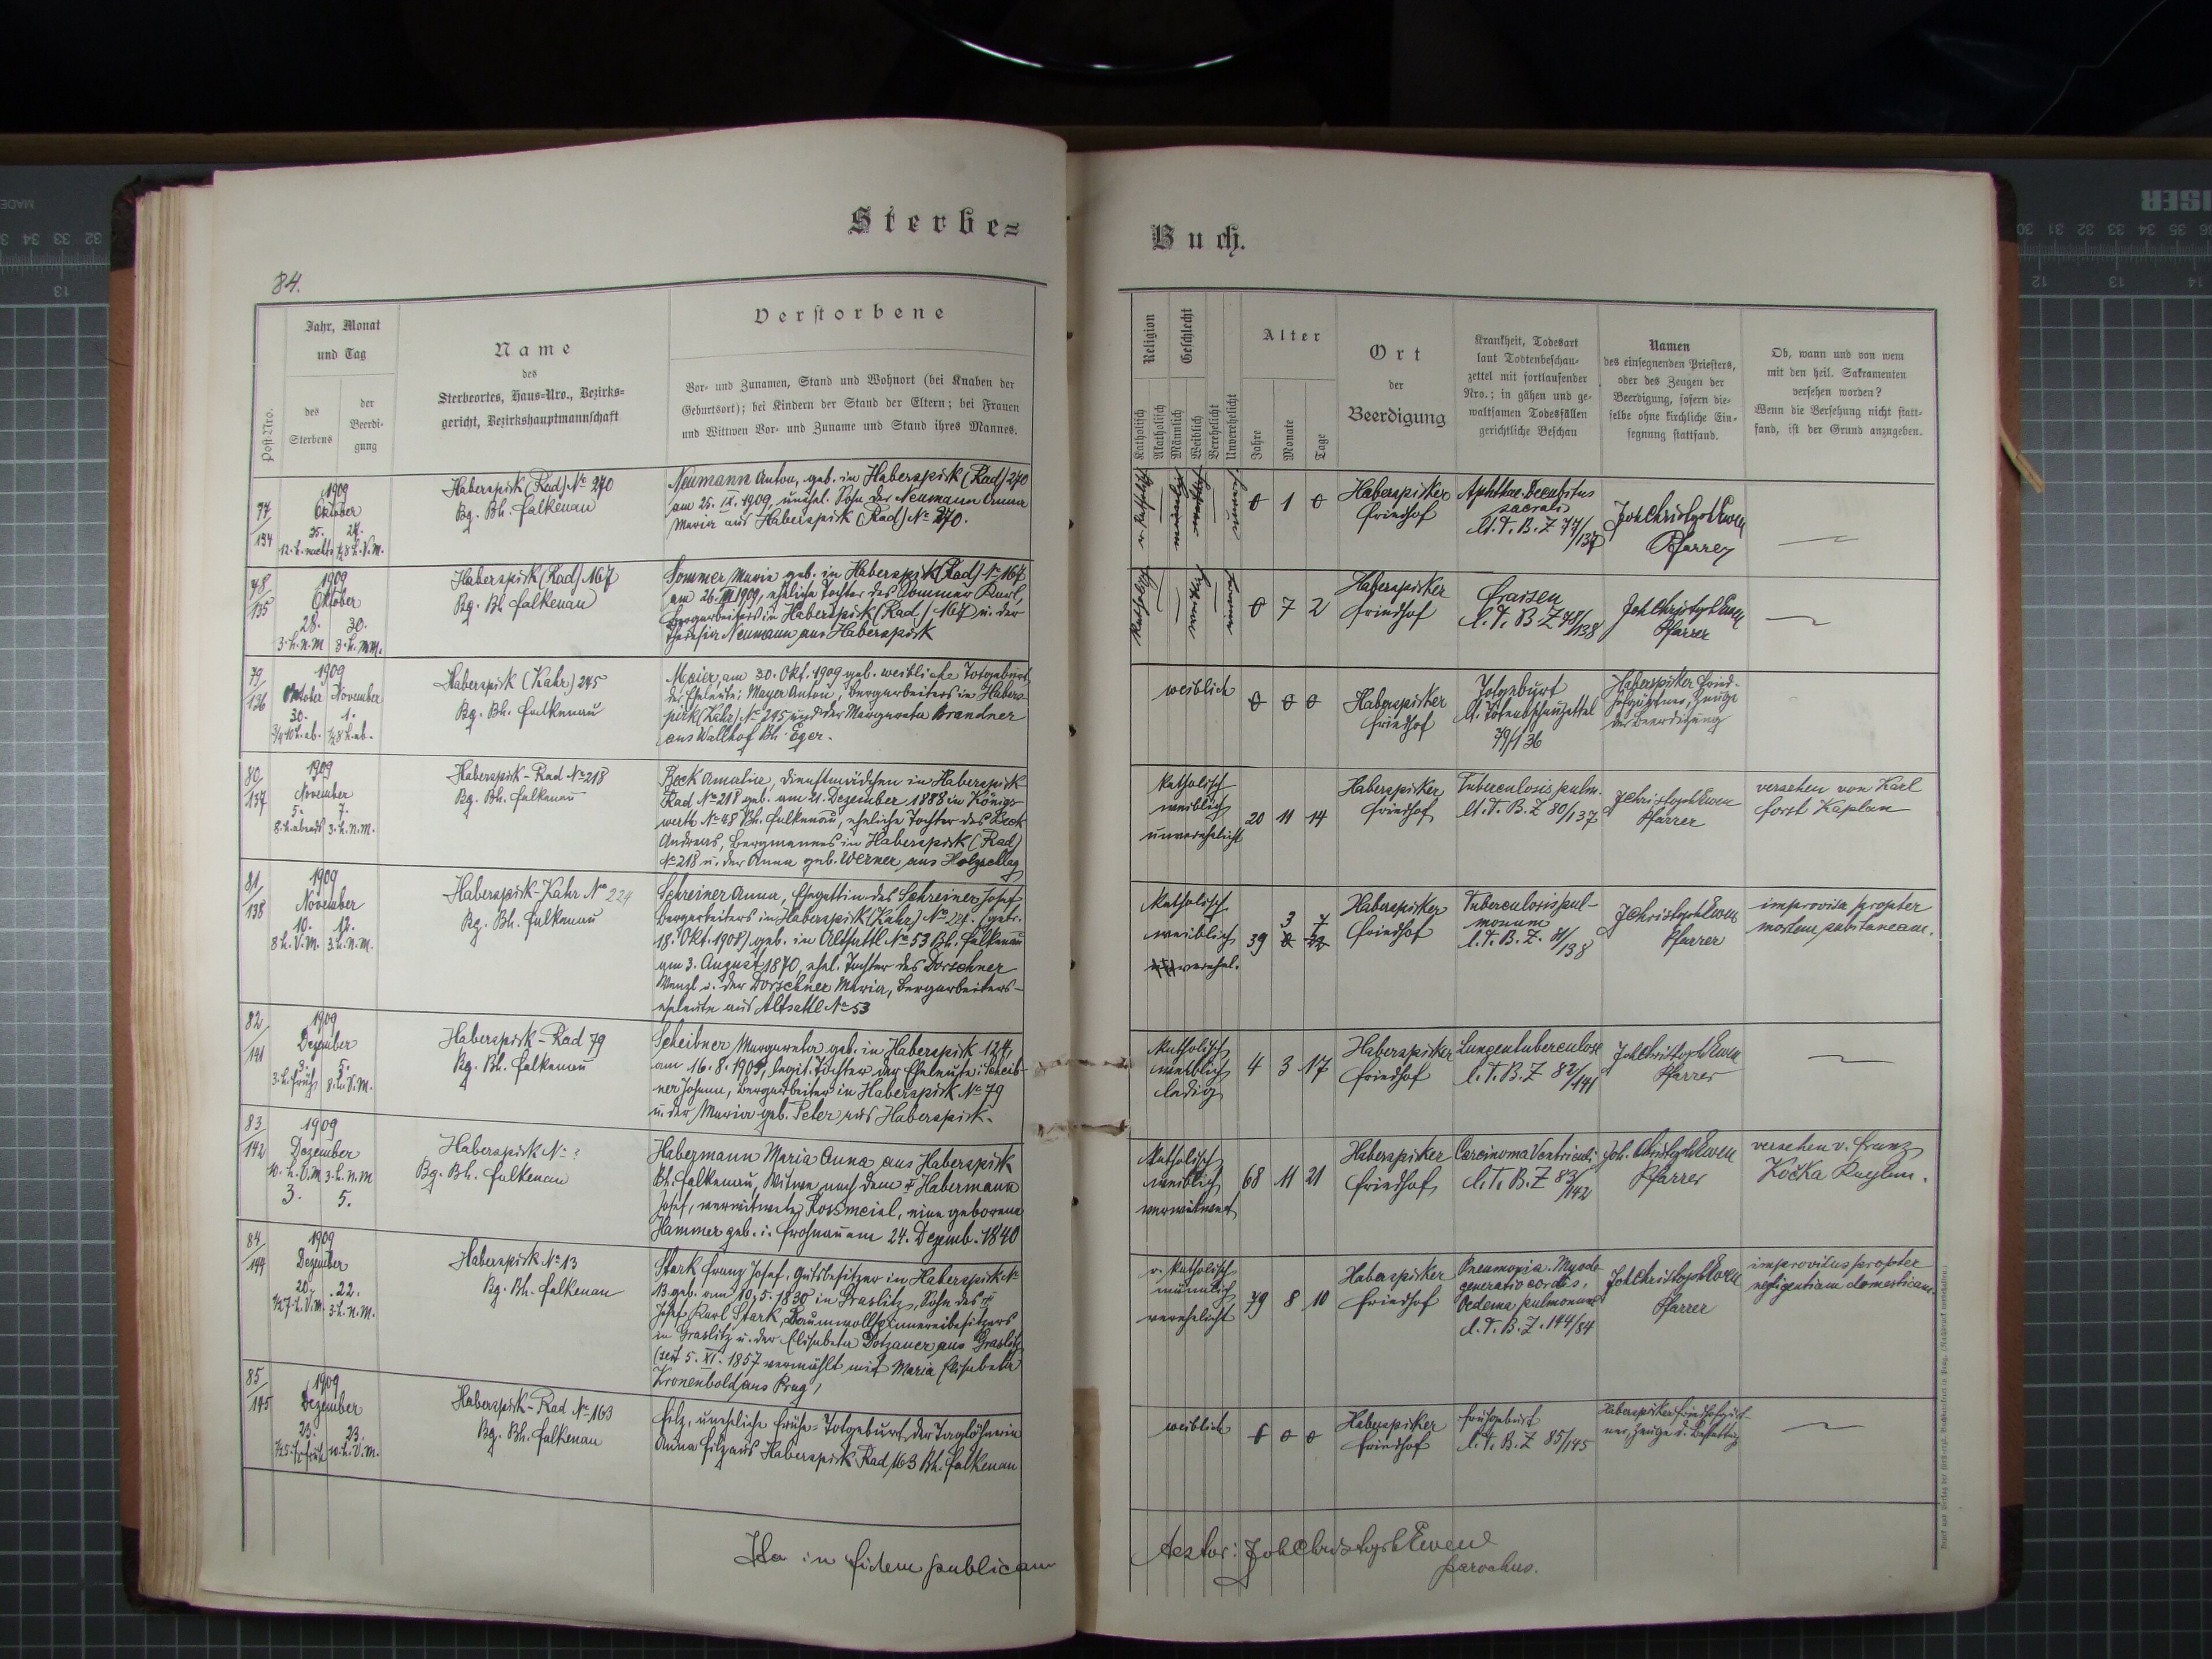 Sterbe=
Buch.
84.
Post-Nro.
Jahr, Monat
und Tag
des
Sterbens
der
Beerdi-
gung
Name
des
Sterbeortes, Haus-Nro., Bezirks-
gericht, Bezirkshauptmannschaft
Verstorbene
Vor- und Zunamen, Stand und Wohnort (bei Knaben der
Geburtsort); bei Kindern der Stand der Eltern; bei Frauen
und Wittwen Vor- und Zuname und Stand ihres Mannes.
Religion
Katholisch
Akatholisch
Geschlecht
Männlich
Weiblich
Verehelicht
Unverehelicht
Alter
Jahre
Monate
Tage
Ort
der
Beerdigung
Krankheit, Todesart
laut Todtenbeschau-
zettel mit fortlaufender
Nro.; in gähen und ge-
waltsamen Todesfällen
gerichtliche Beschau
Namen
des einsegnenden Priesters,
oder des Zeugen der
Beerdigung, sofern die-
selbe ohne kirchliche Ein-
segnung stattfand.
Ob, wann und von wem
mit den heil. Sakramenten
versehen worden?
Wenn die Versehung nicht statt-
fand, ist der Grund anzugeben.
77/134
1909
Oktober
25. 27.
12. h. nachts ½8 h. V.M.
Haberspirk (Rad) No 270
Bg. Bh. Falkenau
Neumann Anton, geb. in Haberspirk (Rad) 270
am 25. IX. 1909, unehel. Sohn der Neumann Anna
Maria aus Haberspirk (Rad) No 270.
0 1 0
Haberspirker
Friedhof
Aphthae. Decubitus
sacralis
lt. T. B. Z 77/137
Joh Christoph Ewen
Pfarrer
78/135
1909
Oktober
28. 30.
3. h. n.M 3. h. nm.
Haberspirk (Rad) 167
Bg. Bh Falkenau
Sommer Marie geb. in Haberspirk (Rad) No 167
am 26. III 1909, eheliche Tochter des Sommer Karl,
Bergarbeiters in Haberspirk (Rad) 167 u. der
Theresia Neumann aus Haberspirk
0 7 2
Haberspirker
Friedhof
Fraisen
l. T. B. Z 78/138
Joh Christoph Ewen
Pfarrer
79/136
1909
Oktober November
30. 1.
¾10 h. ab. ½8 h. ab.
Haberspirk (Kahr) 245
Bg. Bh. Falkenau
Maier, am 30. Okt. 1909 geb. weibliche Totgeburt
der Eheleute: Mayer Anton, Bergarbeiters in Habers-
pirk (Kahr) No 245 und der Margareta Brandner
aus Wallhof Bh. Eger.
weiblich
0 0 0
Haberspirker
Friedhof
Totgeburt
lt. Totenbeschauzettel
79/136
Haberspirker Fried-
hofgärtner, Zeuge
der Beerdigung
80/137
1909
November
5. 7.
8. h. abends 3. h. n.M.
Haberspirk - Rad No 218
Bg. Bh. Falkenau
Beck Amalie, Dienstmädchen in Haberspirk
Rad No 218 geb. am 21. Dezember 1888 in Königs-
werth No 48 Bh. Falkenau, eheliche Tochter des Beck
Andreas, Bergmannes in Haberspirk (Rad)
No 218 u. der Anna geb. Werner aus Holzschlag
katholisch
weiblich
unverehelicht
20 11 14
Haberspirker
Friedhof
Tuberculosis pulm.
lt. T. B. Z 80/137
J Christoph Ewen
Pfarrer
versehen von Karl
Forst Kaplan
81/138
1909
November
10. 12.
8 h. V.M. 3. h. n.M.
Haberspirk-Kahr No 224
Bg. Bh. Falkenau
Schreiner Anna, Ehegattin des Schreiner Josef
Bergarbeiters in Haberspirk (Kahr) No 224. (getr.
18. Okt. 1908) geb. in Altsattl No 53 Bh. Falkenau
am 3. August 1870, ehel. Tochter des Dorschner
Wenzl u. der Dorschner Maria, Bergarbeiters-
eheleute aus Altsattl No 53
katholisch
weiblich
verehel.
39 3 7
Haberspirker
Friedhof
Tuberculosis pul-
monum
l. T. B. Z. 81/138
J Christoph Ewen
Pfarrer
improvisa propter
mortem subitaneam.
82/141
1909
Dezember
3. 5.
3. h. früh 8. h. V.M.
Haberspirk - Rad 79
Bg. Bh. Falkenau
Scheibner Margareta geb. in Haberspirk 124,
am 16. 8. 1905, legit. Tochter der Eheleute: Scheib-
ner Johann, Bergarbeiter in Haberspirk No 79
u. der Maria geb. Peter aus Haberspirk.
katholisch
weiblich
ledig
4 3 17
Haberspirker
Friedhof
Lungentuberculose
l. T. B. Z 82/141
Joh Christoph Ewen
Pfarrer
83/142
1909
Dezember
10. h. V.M 3. h. n.M
3. 5.
Haberspirk No ?
Bg. Bh. Falkenau
Habermann Maria Anna aus Haberspirk
Bh. Falkenau, Witwe nach dem † Habermann
Josef, verwitwete Rossmeisl, eine geborene
Hammer geb. i. Frohnau am 24. Dezemb. 1840
katholisch
weiblich
verwitwet
68 11 21
Haberspirker
Friedhof
Carcinoma Ventriculi
l. T. B. Z 83/142
Joh. Christoph Ewen
Pfarrer
versehen v. Franz
Kočka Kaplan.
84/144
1909
Dezember
20. 22.
½7 h. V.M. 3. h. n.M.
Haberspirk No 13
Bg. Bh. Falkenau
Stark Franz Josef, Gutsbesitzer in Haberspirk No
13 geb. am 10. 5. 1830 in Graslitz, Sohn des †
Josef Karl Stark, Baumwollspinnereibesitzers
in Graslitz u. der Elisabeta Dotzauer aus Graslitz
(seit 5. XI. 1857 vermählt mit Maria Elisabeta
Kronenbold aus Prag)
r. katholisch
männlich
verehelicht
79 8 10
Haberspirker
Friedhof
Pneumonia. Myode-
generatio cordis,
Oedema pulmonum
l. T. B. Z. 144/84
Joh Christoph Ewen
Pfarrer
improvitus propter
negligentiam domesticam.
85/145
1909
Dezember
23. 23.
½5. h. früh 10. h. V.M.
Haberspirk - Rad No 163
Bg. Bh. Falkenau
Filz, uneheliche Früh-Totgeburt der Taglöhnerin
Anna Filz aus Haberspirk Rad 163 Bh. Falkenau
weiblich
0 0 0
Haberspirker
Friedhof
Frühgeburt
l. T. B. Z 85/145
Haberspirker Friedhofgärt-
ner, Zeuge d.
Ita in fidem publicam
testor: Joh Christoph Ewen
parochus.